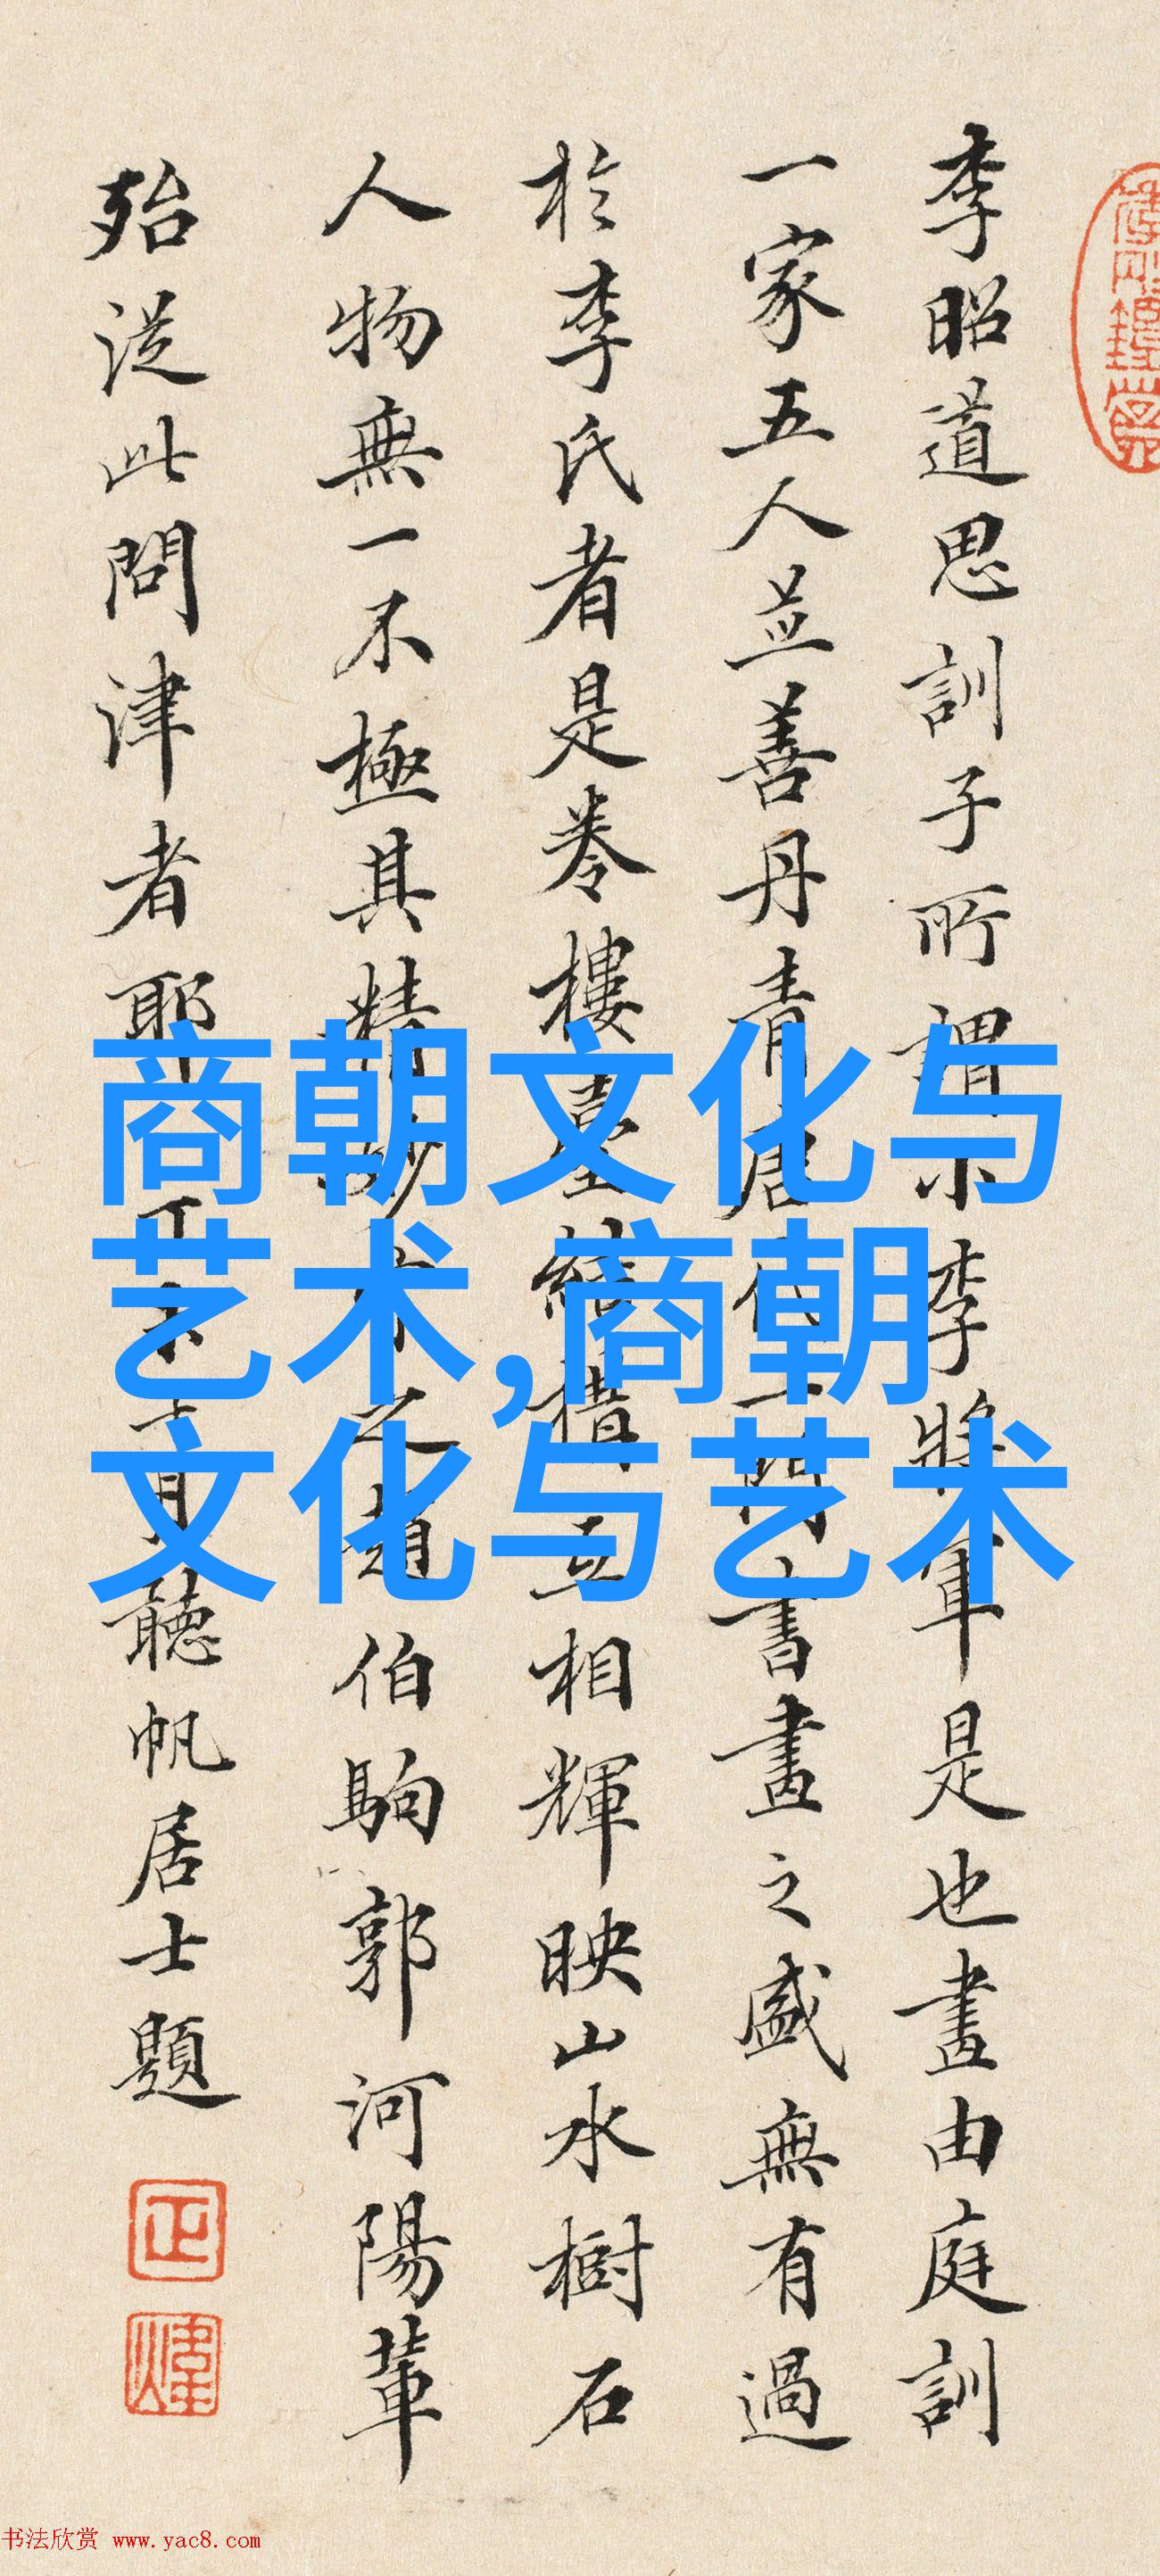 李昭道思訓子所謂小李將軍是也畫由庭訓
一家五人並善丹青唐代一門書畫之盛無有過
於李氏者是卷樓臺結構互相輝映山水樹石
人物無一不極其精妙宋之趙伯駒郭河陽輩
殆從此問津者耶丁未月聽帆居士題
正
煒
商朝文化与
艺术,商朝
文化与艺术
书法欣赏 www.yac8.com